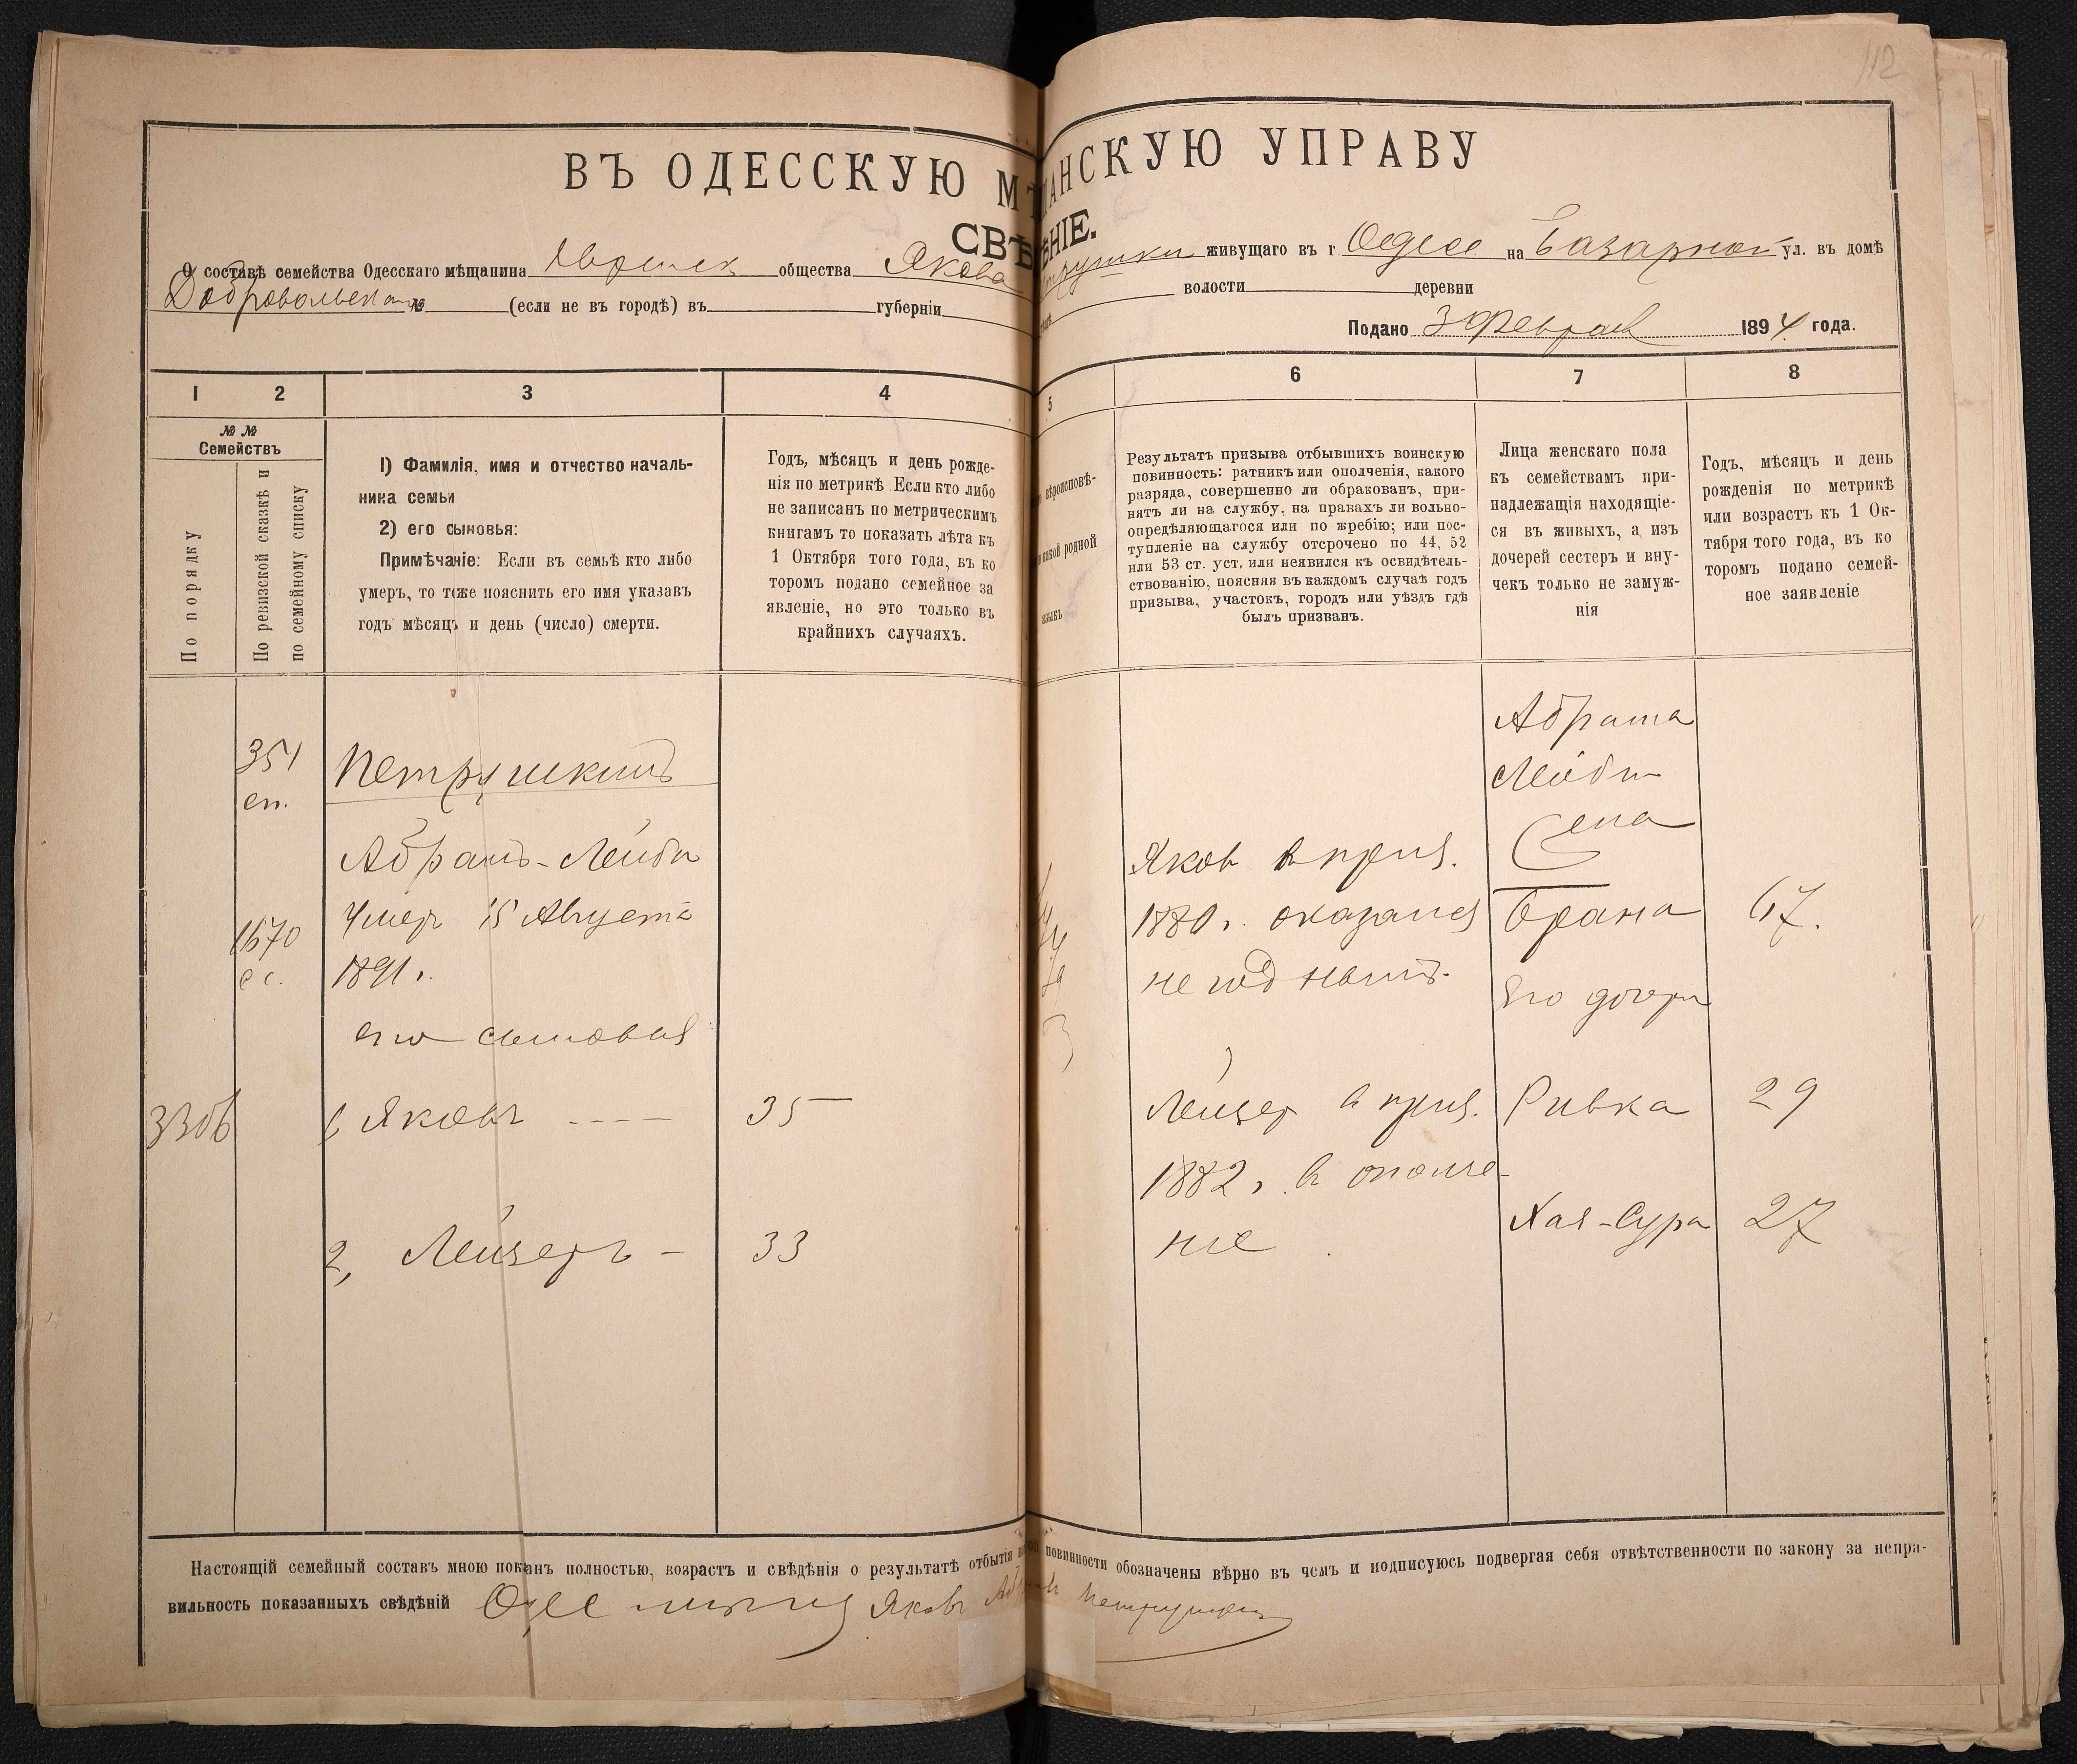 112
ВЪ ОДЕССКУЮ М АНСКУЮ УПРАВУ
СВѢ ѢНІЕ.
О составѣ семейства Одесскаго мѣщанина общества Якова живущаго въ г Одесс на Базарной ул. въ домѣ
Добровольскаго № (если не въ городѣ) въ губерніи волости деревни
Подано 3 Феврал 1894 года.
1 2 3 4 5 6 7 8
№ № Семействъ
По порядку
По ревизской сказкѣ и по семейному списку
1) Фамилія, имя и отчество началь-
ника семьи
2) его сыновья:
Примѣчаніе: Если въ семьѣ кто либо
умеръ, то тоже пояснить его имя указавъ
годъ мѣсяцъ и день (число) смерти.
Годъ, мѣсяцъ и день рожде-
нія по метрикѣ Если кто либо
не записанъ по метрическимъ
книгамъ то показать лѣта къ
1 Октября того года, въ ко
торомъ подано семейное за
явленіе, но это только въ
крайнихъ случаяхъ.
вѣроисповѣ-
родной
языкъ
Результатъ призыва отбывшихъ воинскую
повинность: ратникъ или ополченія, какого
разряда, совершенно ли обракованъ, при-
нятъ ли на службу, на правахъ ли вольно-
опредѣляющагося или по жребію; или пос-
тупленіе на службу отсрочено по 44, 52
или 53 ст. уст. или неявился къ освидѣтель-
ствованію, поясняя въ каждомъ случаѣ годъ
призыва, участокъ, городъ или уѣздъ гдѣ
былъ призванъ.
Лица женскаго пола
къ семействамъ при-
надлежащія находящіе-
ся въ живыхъ, а изъ
дочерей сестеръ и вну-
чекъ только не замуж-
нія
Годъ, мѣсяцъ и день
рожденія по метрикѣ
или возрастъ къ 1 Ок-
тября того года, въ ко
торомъ подано семей-
ное заявленіе
351
сп.
1670
сс.
3306
Петрушкинъ
Абрамъ-Лейба
Умеръ 15 Августа
1891 г.
его сыновья
1, Яковъ ---- 35
2, Лейзеръ - 33
Яковъ в приз.
1880 г. оказался
не годнымъ.
Лейзеръ в приз.
1882 г. в ополче-
ніе
Абрама
Лейбы
Жена
Брана 67.
Его дочери
Ривка 29
Хая-Сура 27
Настоящій семейный составъ мною показанъ полностью, возрастъ и свѣдѣнія о результатѣ отбытія повинности обозначены вѣрно въ чемъ и подписуюсь подвергая себя отвѣтственности по закону за непра-
вильность показанныхъ свѣдѣній Яковъ